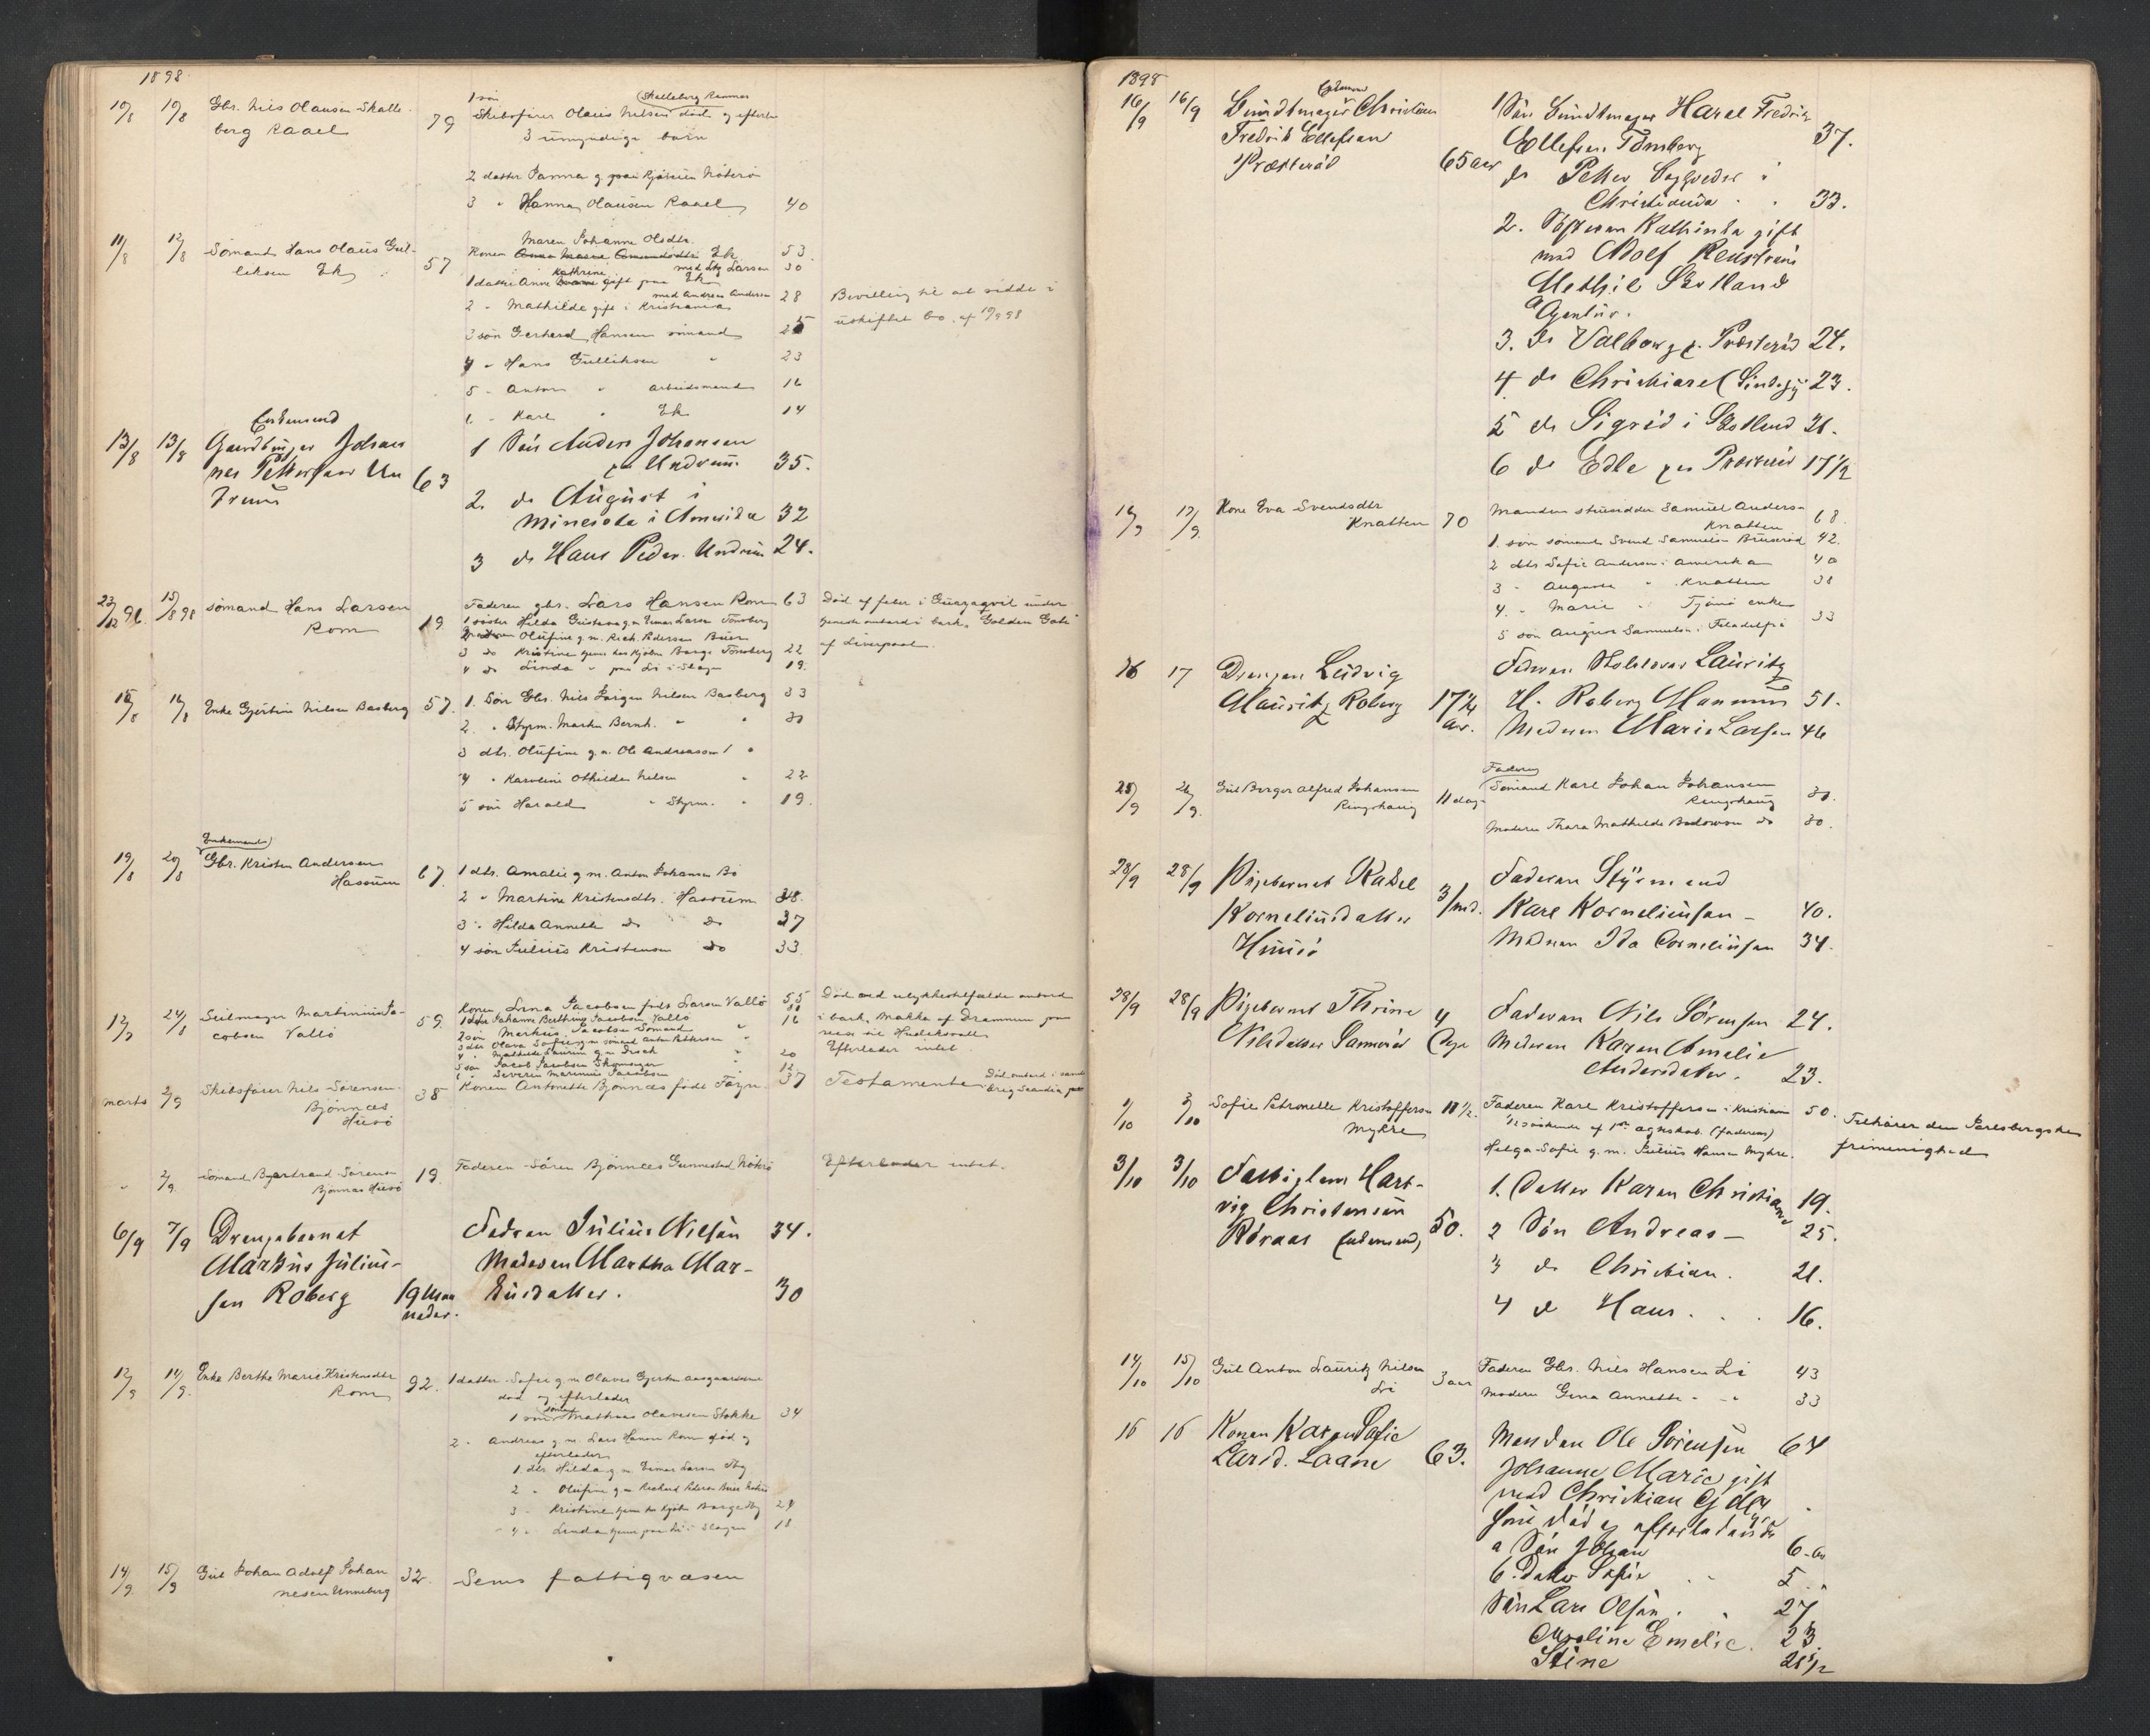 1898
10/8 10/8 Gbr. Nils Olausen Skalle-
berg Raael 79
1 søn Skalleberg Rammes
Skibsfører Olaus Nilsen død og efterl.
3 umyndige børn
2 datter
3 " Hanna Olausen Raael 40
11/8 12/8 Sømand Hans Olaus Gul-
liksen Ek 57
Maren Johanne Olsdtr.
Konen Ek 53
Kathrine med Larsen 30
1 datter Anne gift paa Ek
med Andreas Andersen 28
2 " Mathilde gift i Kristiania
3 søn Gerhard Hansen sømand 25
4 " Hans Gulliksen " 23
5 " Anton " arbeidsmand 16
6 " Karl " Ek 14
Bevilling til at sidde i
uskiftet bo. af 10/9 98
Enkemand
13/8 13/8 Gaardbruger Johan-
nes Pettersen Un-
drum 63
1 Søn Anders Johansen
paa Undrum 35.
2 do August i
Minesota i Amerika 32
3 do Hans Peder. Undrum 24.
23/12 96. 15/8 98 Sømand Hans Larsen
Rom 19
Faderen gbr. Lars Hansen Rom 63
1 søster Hilda Gustava g.m. Larsen Tønsberg
2 Olufine g.m. Rich. Pedersen Buer
3 do Kristine Tønsberg 22
4 do Linda " paa Li i Slagen 19.
Død af feber i Guayaqvil under
tjeneste ombord i bark. "Golden Gate"
af Liverpool.
15/8 16/8 Enke Gjertine Nilsen Basberg 57.
1. Søn Gbr. Nils Jørgen Nilsen Basberg 33
2. " Styrm. Martin Bernh. " " 30
3 dtr. Olufine g.m. Ole Andreassen "
4 " Karoline Othilde Nilsen " 22
5 søn Harald " Styrm. " 19.
Enkemand
19/8 20/8 Gbr. Kristen Andersen
Hassum 67
1 dtr. Amalie g.m. Anton Johansen Bø
2 " Martine Kristensdtr. Hassum 38.
3 " Hilda Annette do do 37
4 søn Julius Kristensen do 33
12/7 24/8 Seilmager Martinius Ja-
cobsen Vallø 59
Konen Lena Jacobsen født Larsen Vallø 55
1 dtr Johanne Berthine Jacobsen Vallø
2 søn Markus Jacobsen Sømand " 16
3 dtr Olava Sofie g.m. sømand Anton Pettersen "
4 " Mathilde Laurine g.m. "
5 søn Jacob Jacobsen Skomager " 20
6 " Severin Marinius Jacobsen " 12
Død ved ulykkestilfælde ombord
i bark, Makka af Drammen paa
reise til Hudiksvall
Efterlader intet
marts 2/9 Skibsfører Nils Sørensen
Bjønnes
Husø 38
Konen Antonette Bjønnes født 37
Testamente Død ombord i samme
" 2/9. Sømand Bertrand Sørensen
Bjønnes Husø 19.
Faderen Søren Bjønnes Gunnestad Nøterø
Efterlader intet.
6/9 7/9 Drengebarnet
Markus Julius-
sen Roberg 19 Maa-
neder.
Faderen Julius Nilsen 34.
Moderen Martha Mar-
kusdatter. 30
12/9 14/9. Enke Berthe Marie Kristensdtr
Rom 92.
1 datter Sofie g.m. Olaves Gjertsen
død og efterlader
1 søn Mathias Olavesen Stokke 34
2 " Andrea g.m. Lars Hansen Rom død og
efterlader
1. dtr. Hilda g.m. Larsen Tbg
2 " Olufine g.m. Richard Pedersen Buer Nøterø
3 " Kristine Tbg 24
4 " Linda tjener paa Li i Slagen 18
14/9 15/9 Gut Johan Adolf Johan-
nesen Unneberg 32.
Sems fattigvæsen
1898
16/9 16/9 Enkemand
Bundtmager Christian
Fredrik Ellefsen
Præsterød 65 aar
1 Søn Buntmager Haral Fredrik
Ellefsen Tønsberg 37.
do Petter i
Christiania . . 33.
2. Søsteren Kathinka gift
med Adolf
Methil Skotland
Agentur.
3. do Valborg p. Præsterød 24.
4 do Christiane 23.
5 do Sigrid i Skotland 21.
6 do Edle paa Præsterød 17 1/2
16/9 17/9. Kone Eva Svendsdtr
Knatten 70
Manden Samuel Anders-
Knatten 68.
1. søn sømand Svend Samuelsen Bruserød 42.
2 dtr Sofie Andersen i Amerika 40
3 " Augusta " Knatten 38
4. " Marie " Tjømø enke 33
5 søn August Samuelsen i Filadelfia
16 17 Drengen Ludvig
Mauritz Roberg 17 1/4
Aar.
Faderen Lauritz
H. Roberg 51.
Moderen Marie Larsen 46
25/9 26/9. Gut Birger Alfred Johansen
Ringshaug 11 dag.
Faderen
Sømand Karl Johan Johansen
Ringshaug 31.
Moderen Thara Mathilde do 30.
28/9 28/9 Pigebarnet Rakel
Korneliusdatter
Husø 3/md.
Faderen Styrmand
Karl Korneliussen - 40.
Moderen Ida Corneliussen 34.
28/9 28/9 Pigebarnet Thrine
Nilsdatter 4
Dage
Faderen Nils Sørensen 24.
Moderen Karen Amalie
Andersdatter. 23.
1/10 3/10 Sofie Petronelle Kristoffersen
Myhre 18 1/2.
Faderen Karl Kristoffersen i Kristiania 50.
1/2 søskende af 1ste egteskab. (faderens)
Helga Sofie g.m. Julius Hansen Myhre.
Tilhører den Jarlsbergske
frimenighed
3/10 3/10 Fattiglem Hart-
vig Christensen
Røraas (Enkemand) 50.
1. Datter Karen Christiane 19.
2 Søn Andreas - 25.
3 do Christian. 21.
4 do Hans. . . 16.
14/10 15/10 Gut Anton Lauritz Nilsen
Li 3 aar
Faderen Gbr. Nils Hansen Li 43
Moderen Gina Annette " - " 33
16 16 Konen Karen Sofie
Larsd. Laane 63.
Manden Ole Sørensen 64
Johanne Marie gift
med Christian
hun død og efterladende
a Søn Johan 6 Aar
b. Datter Sofie . - 5 . "
Søn Lars Olsen . . 27
Caroline Emelie . 23.
Stine 21 1/2